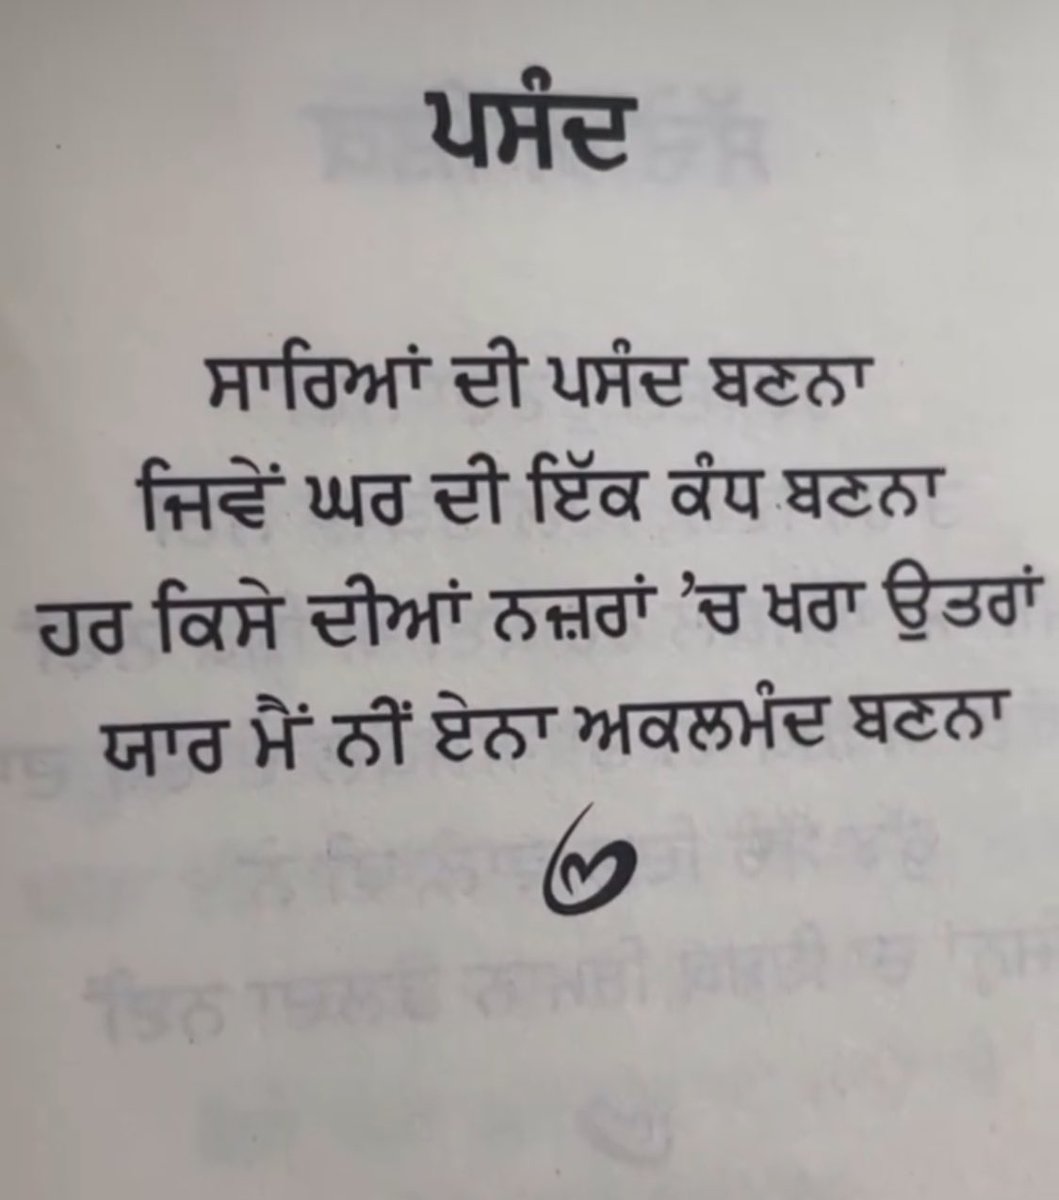 ਪਸੰਦ
ਸਾਰਿਆਂ ਦੀ ਪਸੰਦ ਬਣਨਾ
ਜਿਵੇਂ ਘਰ ਦੀ ਇੱਕ ਕੰਧ ਬਣਨਾ
ਹਰ ਕਿਸੇ ਦੀਆਂ ਨਜ਼ਰਾਂ ’ਚ ਖਰਾ ਉਤਰਾਂ
ਯਾਰ ਮੈਂ ਨੀਂ ਏਨਾ ਅਕਲਮੰਦ ਬਣਨਾ